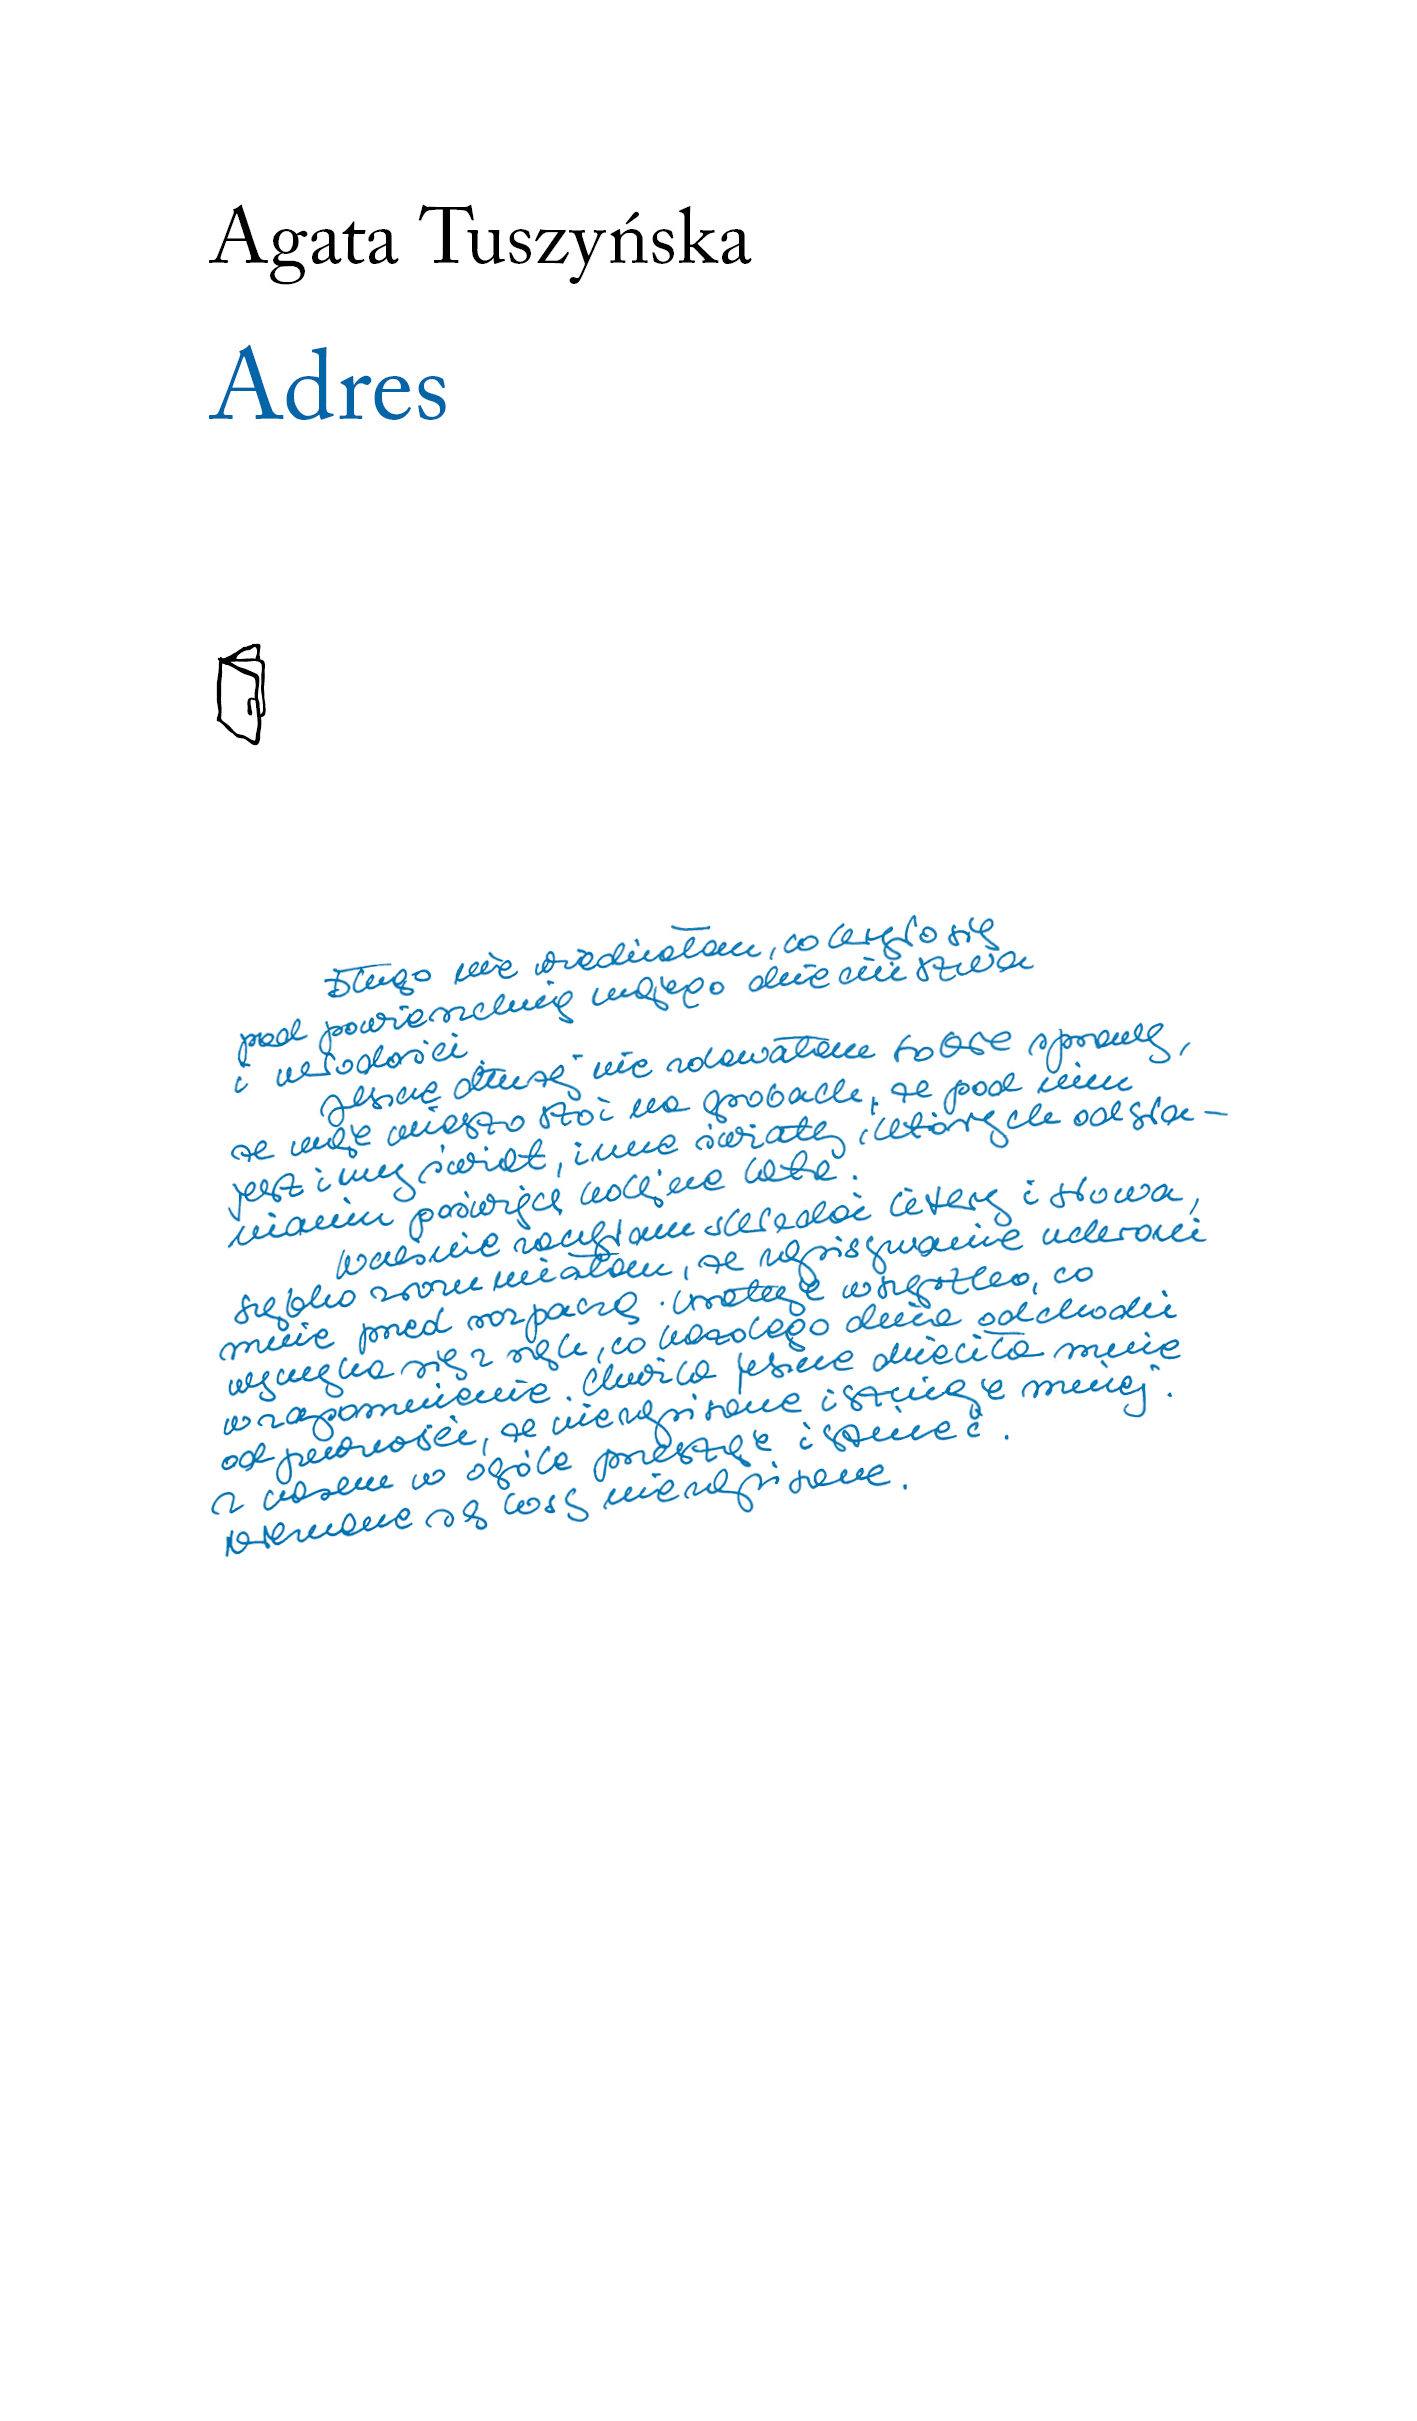 Agata Tuszyńska
Adres
Długo nie wiedziałam, co kryło się
pod powierzchnią mojego dzieciństwa
i młodości.
Jeszcze dłużej nie zdawałam sobie sprawy,
że moje miasto stoi na grobach, że pod nim
jest inny świat, inne światy, których odsła-
nianiu poświęcę kolejne lata.
Wcześnie zaczęłam składać litery i słowa,
szybko zrozumiałam, że zapisywanie uchroni
mnie przed rozpaczą. Uratuje wszystko, co
wymyka się z rąk, co każdego dnia odchodzi
w zapomnienie. Chwila jeszcze dzieliła mnie
od pewności, że niezapisane istnieje mniej.
Z czasem w ogóle przestaje istnieć.
Niezapisane są losy niezapisane.